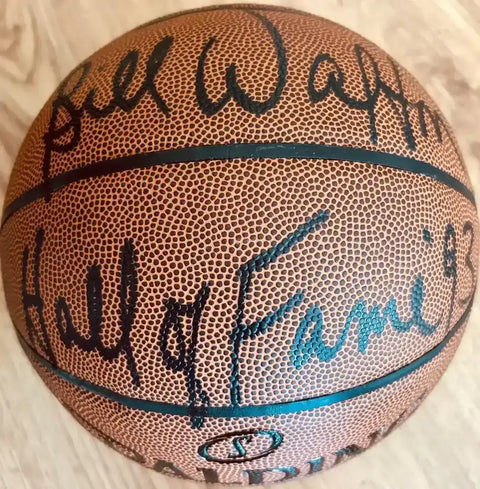 Bill Walton
Hall of Fame '93
S
SPALDING